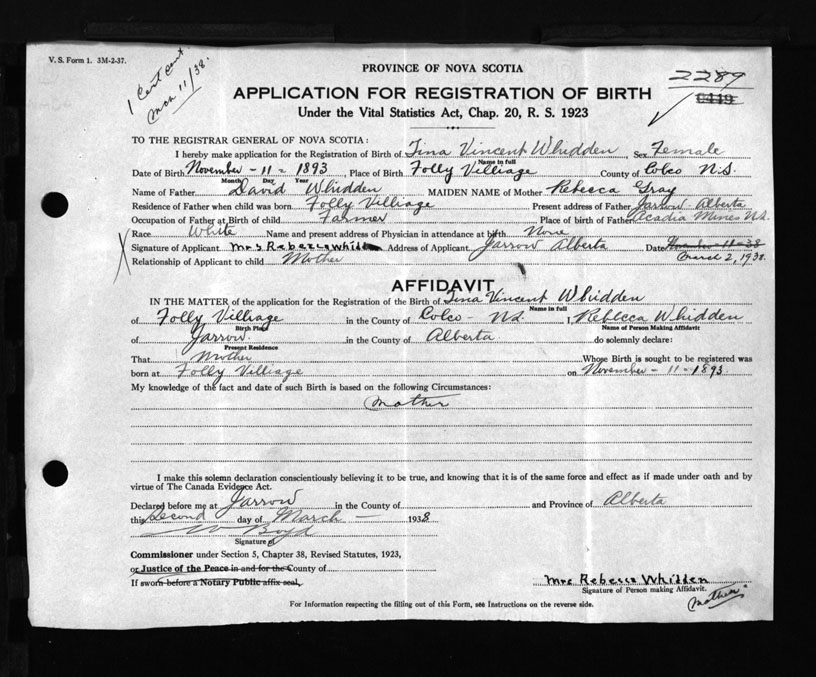 V. S. Form 1. 3M-2-37.
1 Cert cent
Mch 11/38.
PROVINCE OF NOVA SCOTIA
2289
APPLICATION FOR REGISTRATION OF BIRTH
Under the Vital Statistics Act, Chap. 20, R. S. 1923
TO THE REGISTRAR GENERAL OF NOVA SCOTIA:
I hereby make application for the Registration of Birth of Tina Vincent Whidden Sex Female
Name in full
Date of Birth November - 11 - 1893, Place of Birth Folly Villiage County of Colco N.S.
Month Day Year
Name of Father David Whidden MAIDEN NAME of Mother Rebecca Gray
Residence of Father when child was born Folly Villiage Present address of Father Jarrow Alberta
Occupation of Father at Birth of child Farmer Place of birth of Father Acadia Mines N.S.
Race White Name and present address of Physician in attendance at birth None
Signature of Applicant Mrs Rebecca Whidden Address of Applicant Jarrow Alberta Date November-11-38
March 2, 1938.
Relationship of Applicant to child Mother
AFFIDAVIT
IN THE MATTER of the application for the Registration of the Birth of Tina Vincent Whidden
Name in full
of Folly Villiage in the County of Colco - N.S. I, Rebecca Whidden
Birth Place Name of Person Making Affidavit
of Jarrow. in the County of Alberta do solemnly declare:
Present Residence
That Mother Whose Birth is sought to be registered was
born at Folly Villiage on November - 11 - 1893.
My knowledge of the fact and date of such Birth is based on the following Circumstances:
Mother
I make this solemn declaration conscientiously believing it to be true, and knowing that it is of the same force and effect as if made under oath and by
virtue of The Canada Evidence Act.
Declared before me at Jarrow in the County of and Province of Alberta
this Second day of March 1938
W Boyd
Signature of
Commissioner under Section 5, Chapter 38, Revised Statutes, 1923,
or Justice of the Peace in and for the County of
If sworn before a Notary Public affix seal.
Mrs Rebecca Whidden
Signature of Person making Affidavit.
Mother
For Information respecting the filling out of this Form, see Instructions on the reverse side.